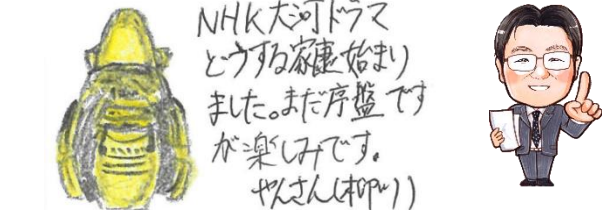 NHK大河ドラマ
どうする家康始まり
ました。まだ序盤です
が楽しみです。
やんさん(柳川)